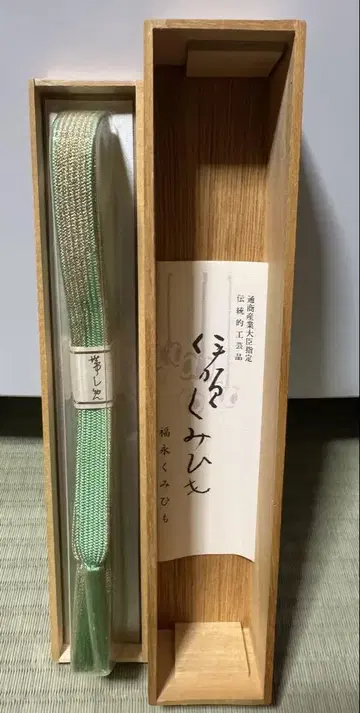 通商産業大臣指定
伝統的工芸品
伊賀くみひも
福永くみひも
帯しめ